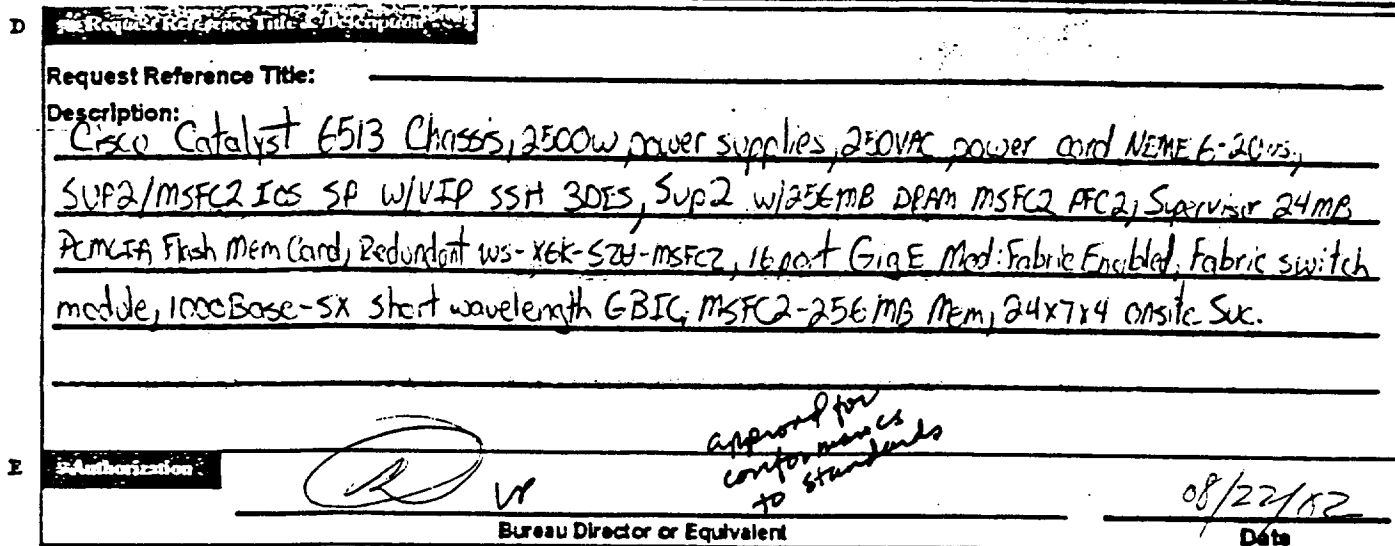 D Request Reference Title & Description
Request Reference Title:
Description:
Cisco Catalyst 6513 Chassis, 2500w power supplies, 250VAC power cord NEME 6-20
SUP2/MSFC2 IOS SP W/VIP SSH 3DES, Sup2 w/256MB DRAM MSFC2 PFC2, Supervisor 24MB
PCMCIA Flash Mem Card, Redundant WS-X6K-S2U-MSFC2, 16 port GigE Mod: Fabric Enabled, Fabric switch
module, 1000Base-SX Short wavelength GBIC, MSFC2-256MB Mem, 24x7x4 onsite Svc.
approved for
conformances
to standards
E Authorization
08/22/02
Bureau Director or Equivalent
Date